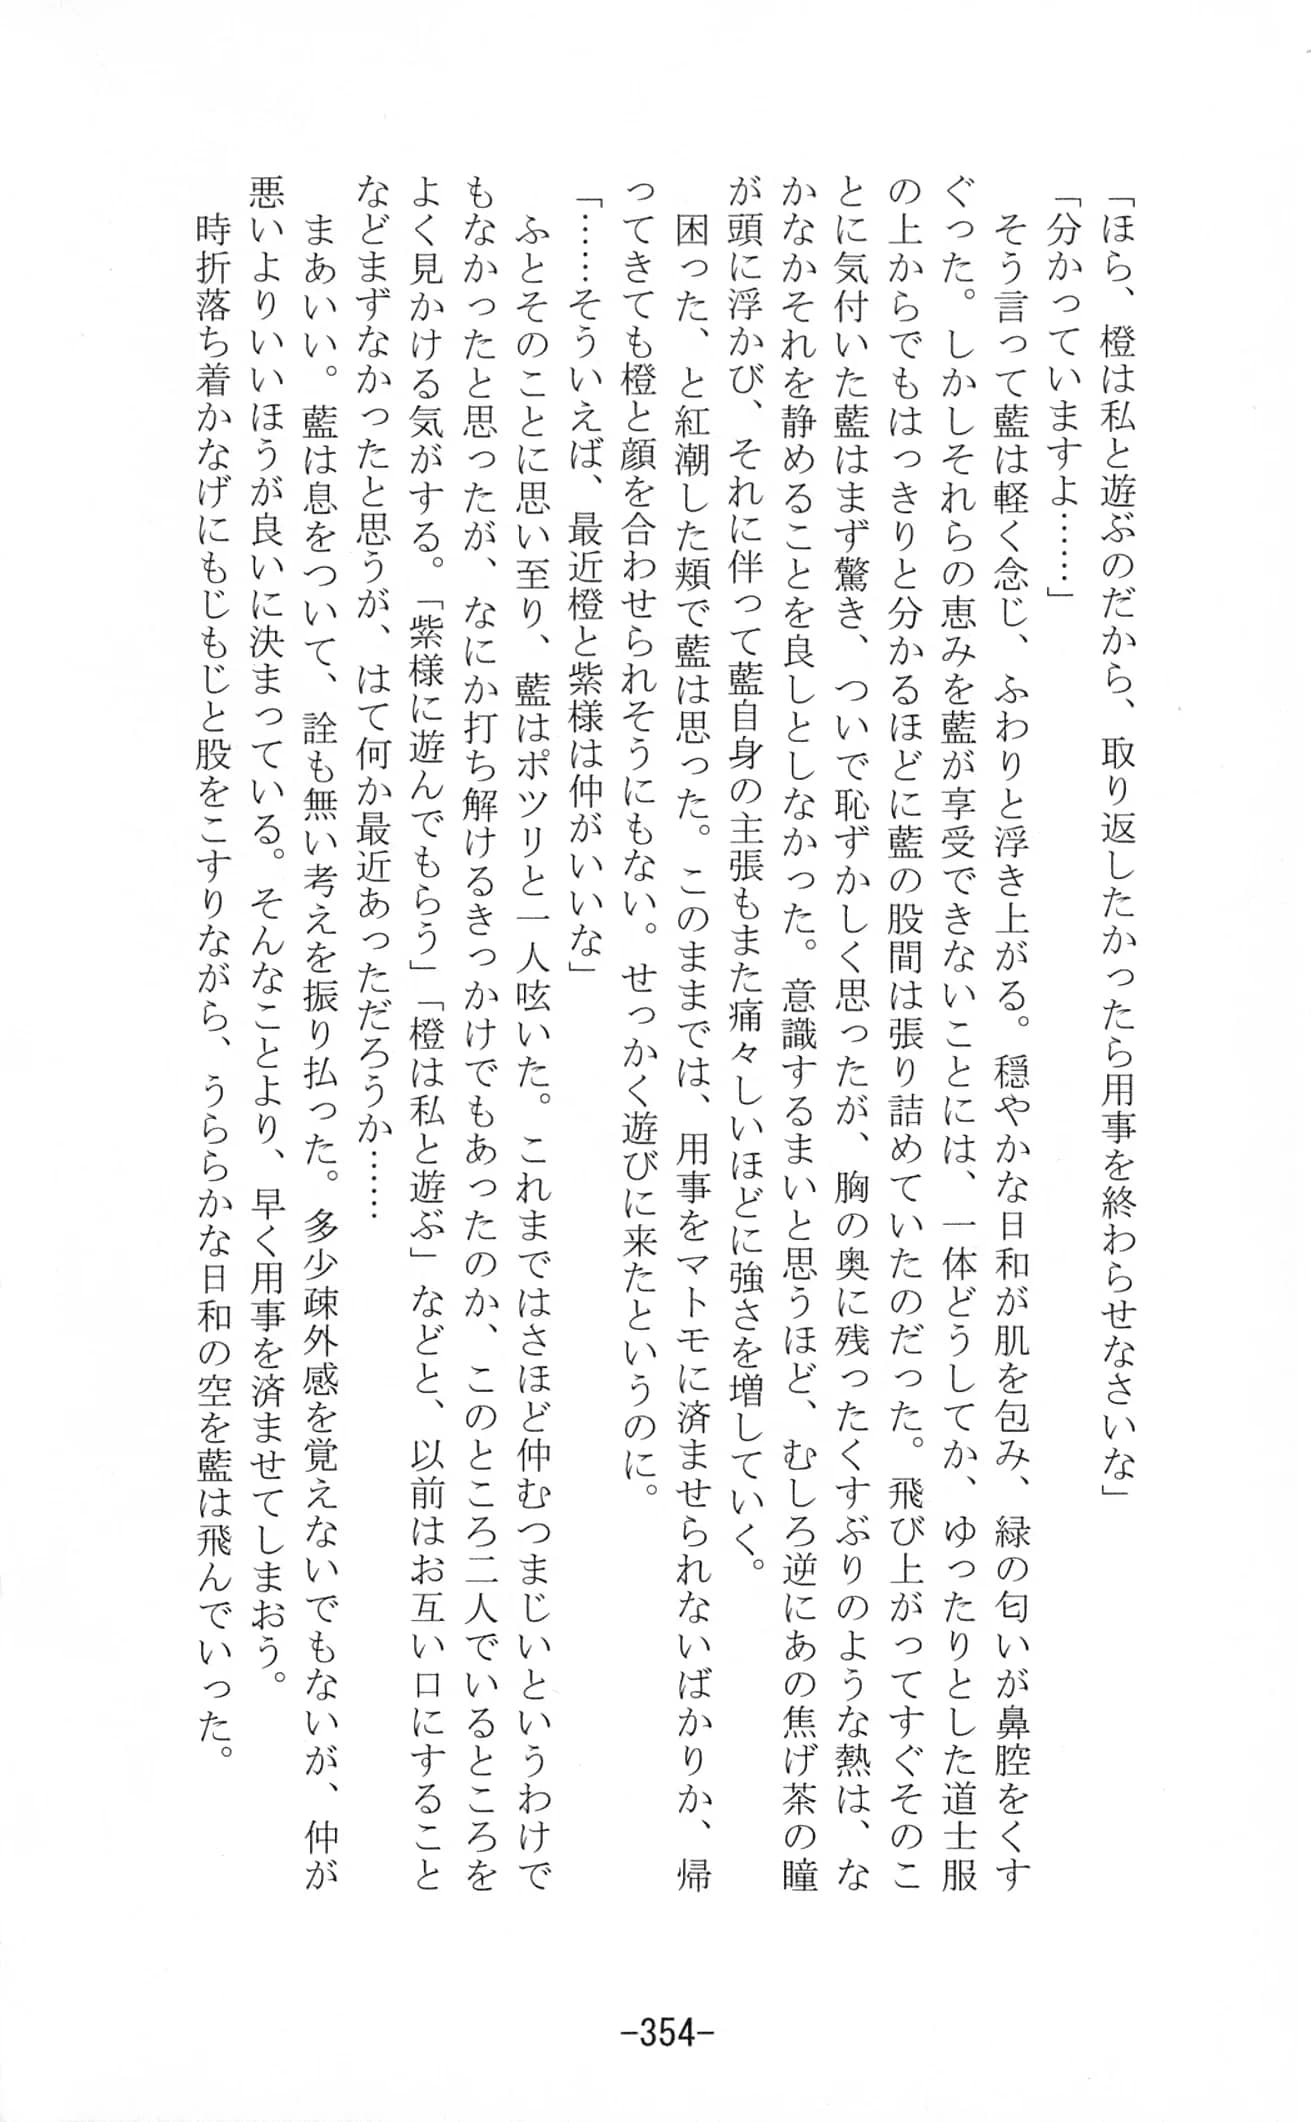 「ほら、橙は私と遊ぶのだから、取り返したかったら用事を終わらせなさいな」
「分かっていますよ……」
　そう言って藍は軽く念じ、ふわりと浮き上がる。穏やかな日和が肌を包み、緑の匂いが鼻腔をくす
ぐった。しかしそれらの恵みを藍が享受できないことには、一体どうしてか、ゆったりとした道士服
の上からでもはっきりと分かるほどに藍の股間は張り詰めていたのだった。飛び上がってすぐそのこ
とに気付いた藍はまず驚き、ついで恥ずかしく思ったが、胸の奥に残ったくすぶりのような熱は、な
かなかそれを静めることを良しとしなかった。意識するまいと思うほど、むしろ逆にあの焦げ茶の瞳
が頭に浮かび、それに伴って藍自身の主張もまた痛々しいほどに強さを増していく。
　困った、と紅潮した頬で藍は思った。このままでは、用事をマトモに済ませられないばかりか、帰
ってきても橙と顔を合わせられそうにもない。せっかく遊びに来たというのに。
「……そういえば、最近橙と紫様は仲がいいな」
　ふとそのことに思い至り、藍はポツリと一人呟いた。これまではさほど仲むつまじいというわけで
もなかったと思ったが、なにか打ち解けるきっかけでもあったのか、このところ二人でいるところを
よく見かける気がする。「紫様に遊んでもらう」「橙は私と遊ぶ」などと、以前はお互い口にすること
などまずなかったと思うが、はて何か最近あっただろうか……
　まあいい。藍は息をついて、詮も無い考えを振り払った。多少疎外感を覚えないでもないが、仲が
悪いよりいいほうが良いに決まっている。そんなことより、早く用事を済ませてしまおう。
　時折落ち着かなげにもじもじと股をこすりながら、うららかな日和の空を藍は飛んでいった。
-354-